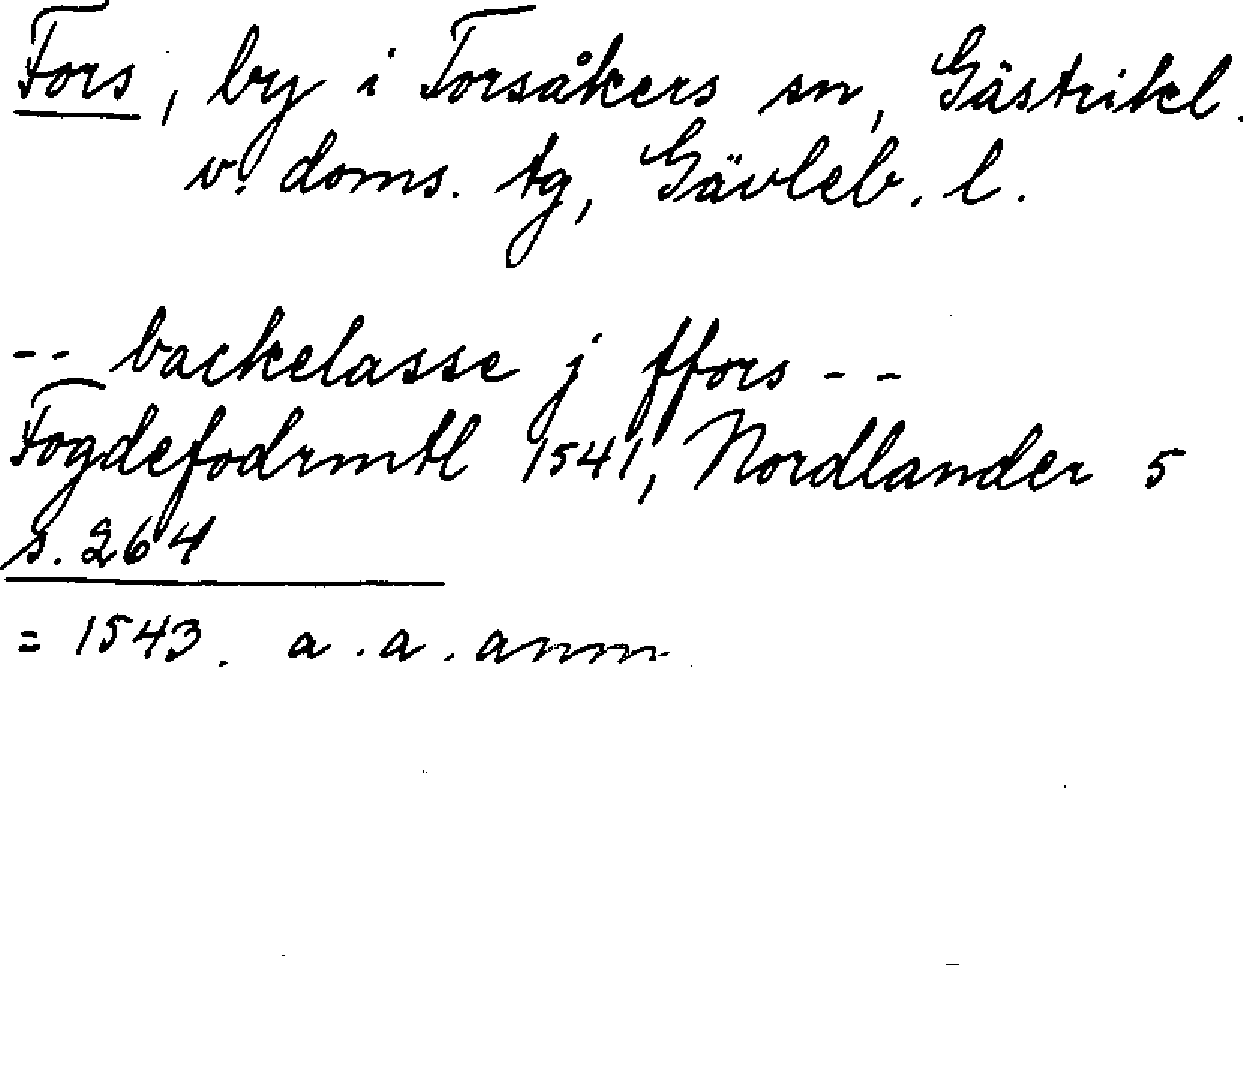 Fors, by i Torsåkers sn, Gästrikl.
v. doms. tg, Gävleb. l.
-- backelasse j ffors --
Fogdefodrmtl 1541, Nordlander 5
s. 264
= 1543. a. a. anm